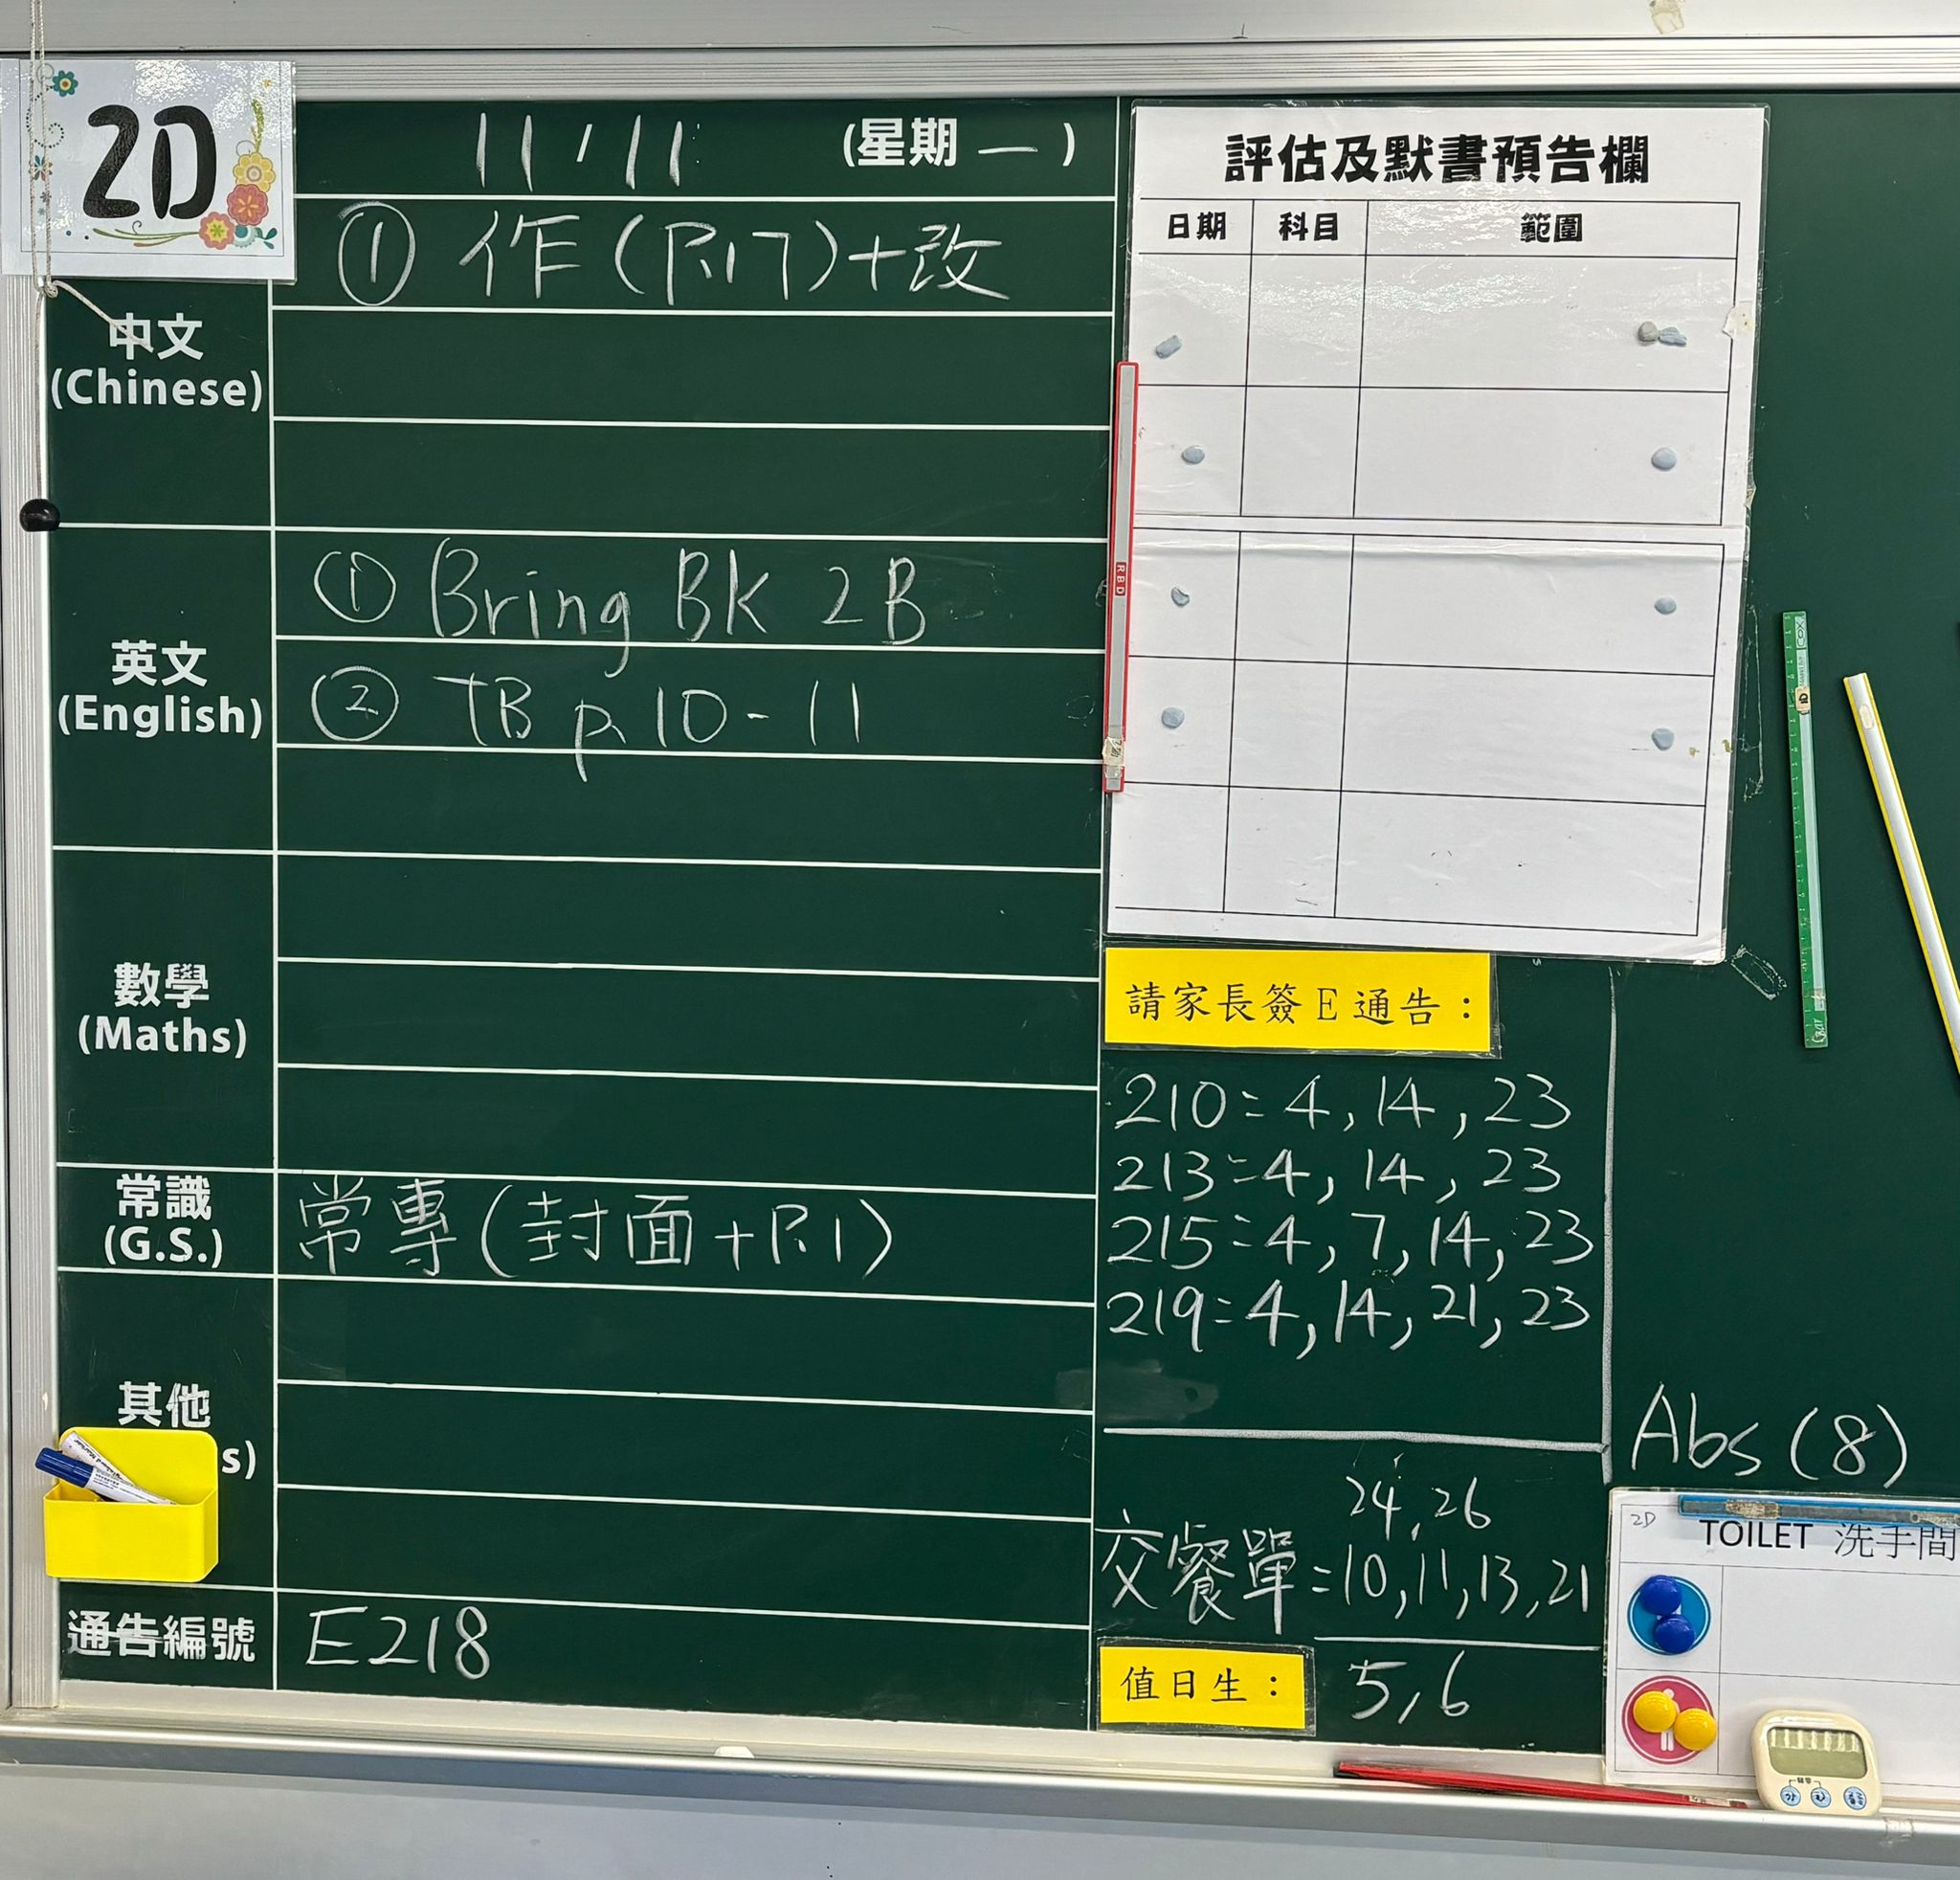 2D
11/11 (星期一)
中文
(Chinese)
① 作(P.17)+改
英文
(English)
① Bring BK 2B
② TB p.10-11
數學
(Maths)
常識
(G.S.)
常專(封面+P.1)
其他
s)
通告編號
E218
評估及默書預告欄
日期 科目 範圍
請家長簽E通告：
210:4,14,23
213:4,14,23
215:4,7,14,23
219:4,14,21,23
24,26
交餐單:10,11,13,21
值日生： 5,6
Abs(8)
2D
TOILET 洗手間
RBD